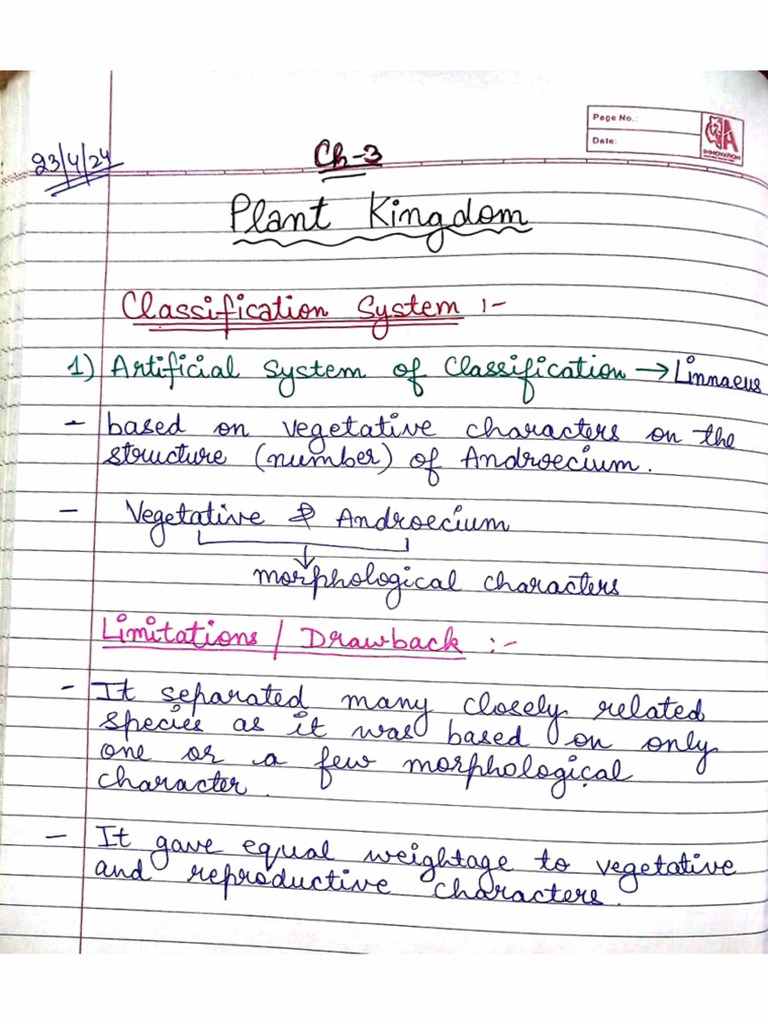 Page No.:
Date:
INNOVATION
23/4/24
Ch-3
Plant Kingdom
Classification System :-
1) Artificial System of Classification → Linnaeus
- based on vegetative characters on the
structure (number) of Androecium.
- Vegetative & Androecium
morphological characters
Limitations / Drawback :-
- It separated many closely related
species as it was based on only
one or a few morphological
character.
- It gave equal weightage to vegetative
and reproductive characters.